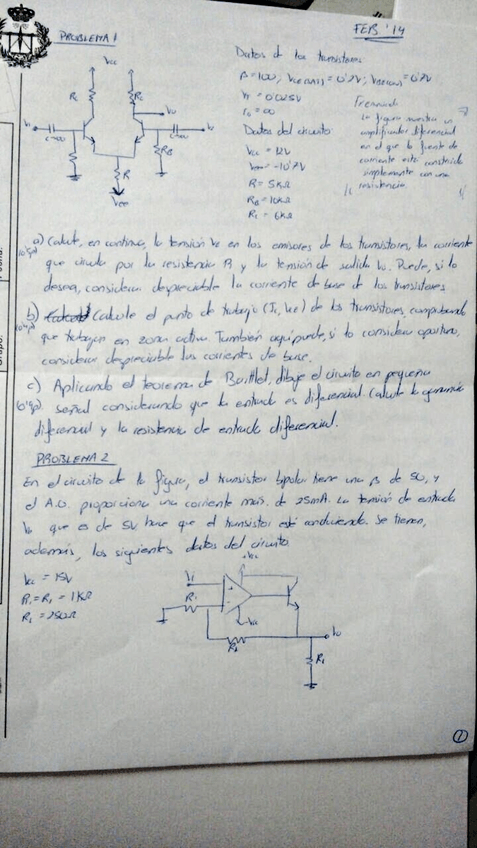 PROBLEMA 1
FEB '14
Datos de los transistores
β=100; VCE(SAT)=0'2V; VBE(ON)=0'7V
VT = 0'025V
ro = ∞
Datos del circuito:
VCC = 12V
VEE = -10'7V
R = 5KΩ
RB = 10KΩ
RC = 6KΩ
La figura muestra un
amplificador diferencial
en el que la fuente de
corriente está construida
simplemente con una
resistencia.
VCC
RC
RC
Vo
C→∞
C→∞
RB
R
VEE
a) Calcule, en continua, la tensión VE en los emisores de los transistores, la corriente
que circula por la resistencia R y la tensión de salida Vo. Puede, si lo
desea, considerar despreciable la corriente de base de los transistores
b) Calcule el punto de trabajo (IC, VCE) de los transistores, comprobando
que trabajan en zona activa. También aquí puede, si lo considera oportuno,
considerar despreciable las corrientes de base.
c) Aplicando el teorema de Bartlet, dibuje el circuito en pequeña
señal considerando que la entrada es diferencial. Calcule la ganancia
diferencial y la resistencia de entrada diferencial.
PROBLEMA 2
En el circuito de la figura, el transistor bipolar tiene una β de 50, y
el A.O. proporciona una corriente máx. de 25mA. La tensión de entrada
que es de 5V hace que el transistor esté conduciendo. Se tienen,
además, los siguientes datos del circuito
VCC = 15V
= 1KΩ
= 250Ω
Vo
1